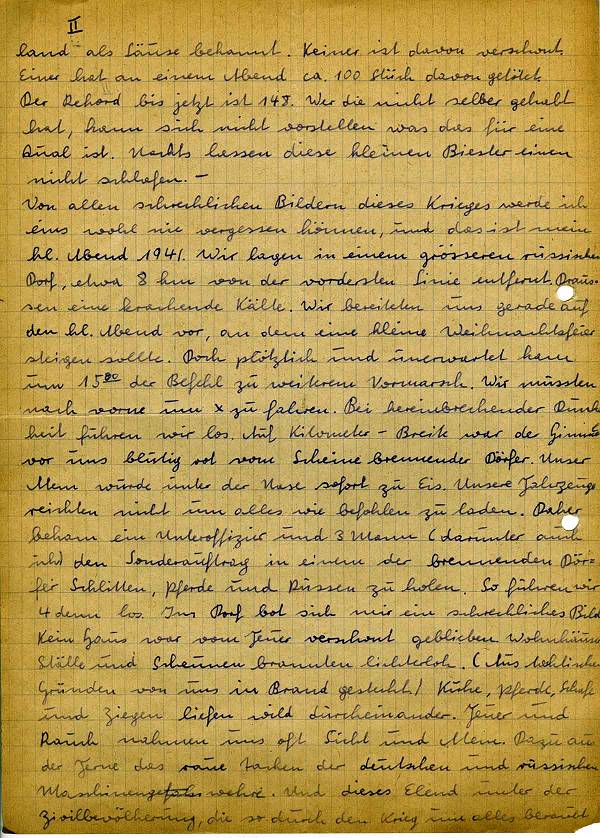 II
land als Läuse bekannt. Keiner ist davon verschont.
Einer hat an einem Abend ca. 100 Stück davon getötet.
Der Rekord bis jetzt ist 148. Wer die nicht selber gehabt
hat, kann sich nicht vorstellen was das für eine
Qual ist. Nachts lassen diese kleinen Biester einen
nicht schlafen. –
Von allen schrecklichen Bildern dieses Krieges werde ich
eins wohl nie vergessen können, und das ist mein
hl. Abend 1941. Wir lagen in einem grösseren russischen
Dorf, etwa 8 km von der vordersten Linie entfernt. Draus-
sen eine krachende Kälte. Wir bereiteten uns gerade auf
den hl. Abend vor, an dem eine kleine Weihnachtsfeier
steigen sollte. Doch plötzlich und unerwartet kam
um 15⁰⁰ der Befehl zu weiterem Vormarsch. Wir mussten
nach vorne um x zu fahren. Bei hereinbrechender Dunkel
heit fuhren wir los. Auf Kilometer - Breite war der Himmel
vor uns blutig rot vom Scheine brennender Dörfer. Unser
Atem wurde unter der Nase sofort zu Eis. Unsere Fahrzeuge
reichten nicht um alles wie befohlen zu laden. Daher
bekam ein Unteroffizier und 3 Mann (darunter auch
ich) den Sonderauftrag in einem der brennenden Dör=
fer Schlitten, Pferde und Russen zu holen. So fuhren wir
4 denn los. Im Dorf bot sich mir ein schreckliches Bild
Kein Haus war vom Feuer verschont geblieben. Wohnhäuser
Ställe und Scheunen brannten lichterloh. (Aus taktischen
Gründen von uns in Brand gesteckt.) Kühe, Pferde, Schafe
und Ziegen liefen wild durcheinander. Feuer und
Rauch nahmen uns oft Sicht und Atem. Dazu aus
der Ferne das Tacken der deutschen und russischen
Maschinengewehre. Und dieses Elend unter der
Zivilbevölkerung, die so durch den Krieg um alles beraubt